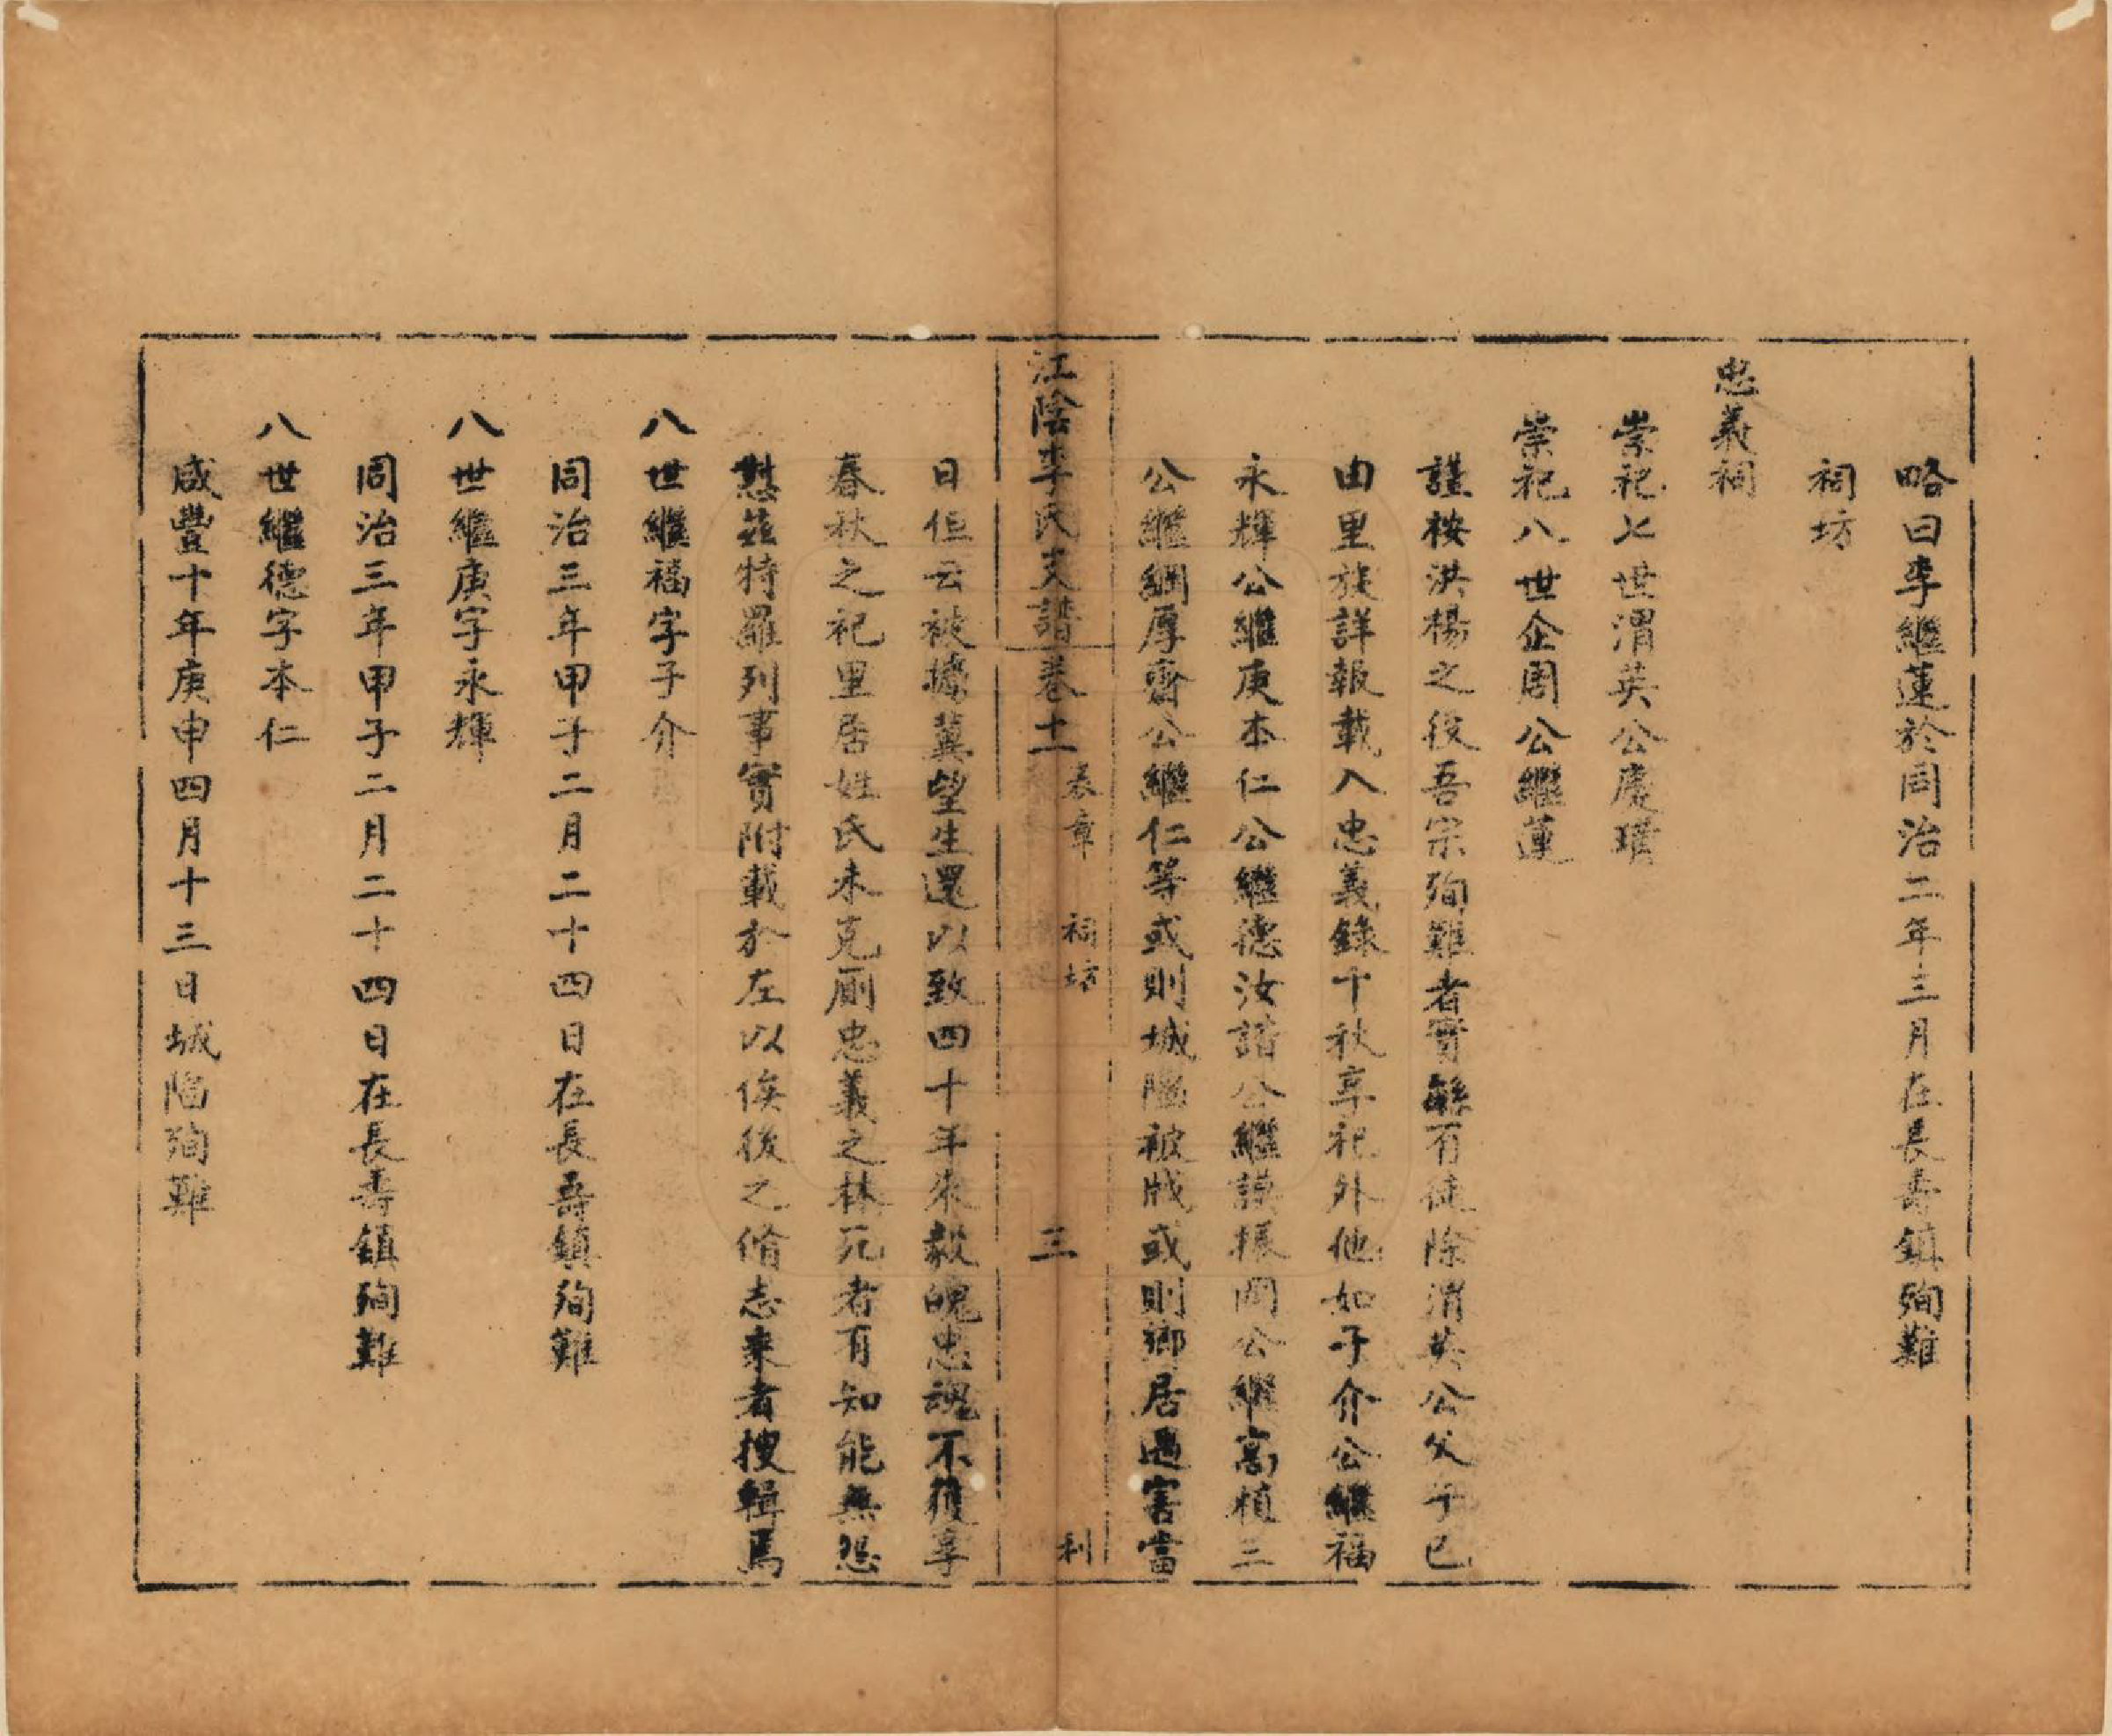 略曰李繼蓮於同治二年三月在長壽鎮殉難
祠坊
忠義祠
崇祀七世渭英公慶璜
崇祀八世企周公繼蓮
謹桉洪楊之役吾宗殉難者實繁有徒除渭英公父子已
由里族詳報載入忠義錄千秋享祀外他如子介公繼福
永輝公繼庚本仁公繼德汝諧公繼謨振岡公繼高植三
公繼綱厚齋公繼仁等或則城陷被戕或則鄉居遇害當
江陰李氏支譜卷十一 表章 祠坊 三 利
日佢云被擄冀望生還以致四十年來毅魄忠魂不獲享
春秋之祀里居姓氏未克廁忠義之林死者有知能無怨
懟茲特羅列事實附載於左以俟後之脩志乘者搜輯焉
八世繼福字子介
同治三年甲子二月二十四日在長壽鎮殉難
八世繼庚字永輝
同治三年甲子二月二十四日在長壽鎮殉難
八世繼德字本仁
咸豐十年庚申四月十三日城陷殉難